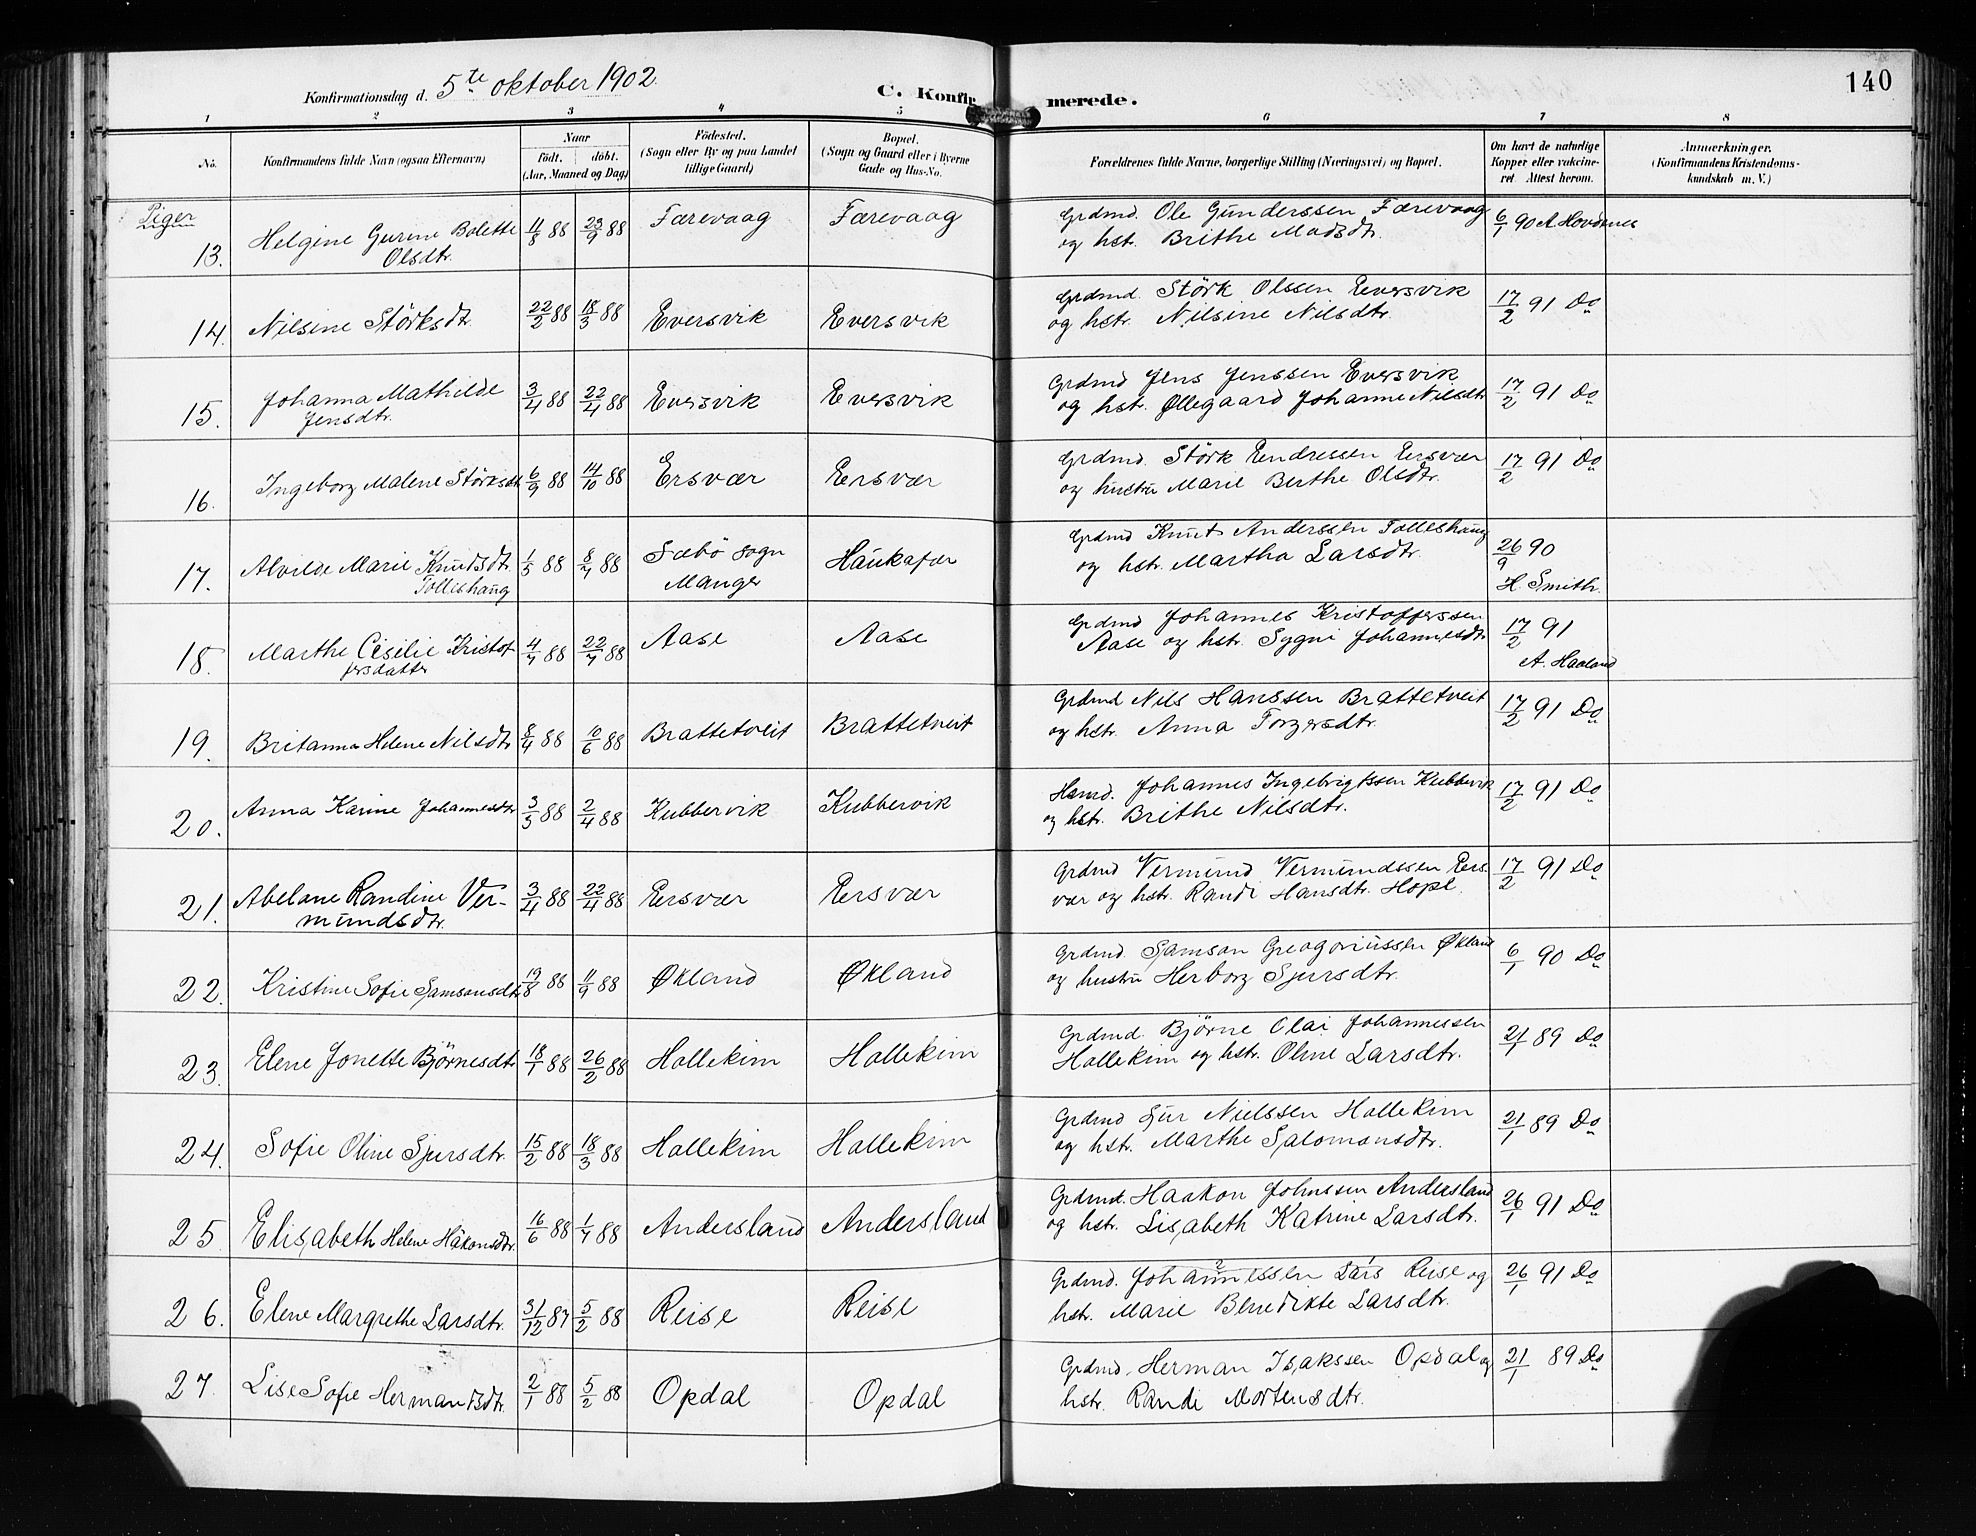 140
Konfirmationsdag d. 5te oktober 1902.
C. Konfirmerede.
1 2 3 4 5 6 7 8
No.
Konfirmandens fulde Navn (ogsaa Efternavn)
Naar
født. døbt.
(Aar, Maaned og Dag)
Födested.
(Sogn eller By og paa Landet
tillige Gaard)
Bopæl.
(Sogn og Gaard eller i Byerne
Gade og Hus-No.
Forældrenes fulde Navne, borgerlige Stilling (Næringsvei) og Bopæl.
Om havt de naturlige
Kopper eller vakcine-
ret Attest herom.
Anmærkninger.
(Konfirmandens Kristendoms-
kundskab m. V.)
Piger
13. Helgine Gurine Bolette 11/8 88 23/9 88 Færevaag Færevaag Grdmd. Ole Gunderssen Færevaag 6/1 90 A. Hovdenes
Olsdtr. og hst. Brithe Madsdtr.
14. Nilsine Störksdt. 22/2 88 18/3 88 Eversvik Eversvik Grdmd. Störk Olssen Eversvik 17/2 91 Do
og hstr. Nilsine Nilsdtr.
15. Johanna Mathilde 3/4 88 22/4 88 Eversvik Eversvik Grdmd Jens Jenssen Eversvik 17/2 91 Do
Jensdtr. og hst. Øllegaard Johanne Nilsdtr
16. Ingeborg Malene Störksdt 6/9 88 14/10 88 Ersvær Ersvær Grdmd. Störk Endressen Ersvær 17/2 91 Do
og hustru Marie Berthe Olsdtr.
17. Alvilde Marie Knudsdtr. 1/5 88 8/7 88 Sæbö sogn Haukafær Grdmd Knut Anderssen Tolleshaug 26/9 90
Tollishaug Manger og hst. Martha Larsdtr. H. Smith.
18. Marthe Cesilie Kristof 4/7 88 22/7 88 Aase Aase Grdmd Johannes Kristofferssen 17/2 91
fersdatter Aase og hstr. Sygni Johannesdtr A. Haaland
19. Britanna Helene Nilsdtr 8/4 88 10/6 88 Brattetveit Brattetveit Grdmd Nils Hanssen Brattetveit 17/2 91 Do
og hstr. Anna Torgersdtr.
20. Anna Karine Johannesdtr 3/3 88 2/4 88 Kubbervik Kubbervik Hsmd. Johannes Ingebrigtssen Kubbervik 17/2 91 Do
og hst. Brithe Nilsdtr.
21. Abelane Randine Ver- 3/4 88 22/4 88 Ersvær Ersvær Grdmd Vermund Vermundssen Ers- 17/2 91 Do
mundsdtr. vær og hstr. Randi Hansdtr. Hope.
22. Kristine Sofie Samsonsdtr 19/8 88 11/9 88 Økland Økland Grdmd. Samson Greogoriussen Økland 6/1 90 Do
og hustru Herborg Sjursdtr.
23. Elene Jonette Björnesdtr 18/1 88 26/2 88 Hallekim Hallekim Grdmd. Björne Olai Johannessen 21/1 89 Do
Hallekim og hst. Oline Larsdtr.
24. Sofie Oline Sjursdtr. 15/2 88 18/3 88 Hallekim Hallekim Grdmd Sjur Nielssen Hallekim 21/1 89 Do
og hst. Marthe Salomonsdtr.
25. Elisabeth Helene Håkonsdtr. 16/6 88 1/7 88 Andersland Andersland Grdmd. Haakon Johnssen Andersland 26/1 91 Do
og hst. Lisabeth Katrine Larsdtr.
26. Elene Margrethe Larsdtr. 31/12 87 5/2 88 Reise Reise Grdmd. Johannessen Lars Reise og 26/1 91 Do
hstr. Marie Benedikte Larsdtr.
27. Lise Sofie Hermandsdtr. 2/1 88 5/2 88 Opdal Opdal Grdmd. Herman Isakssen Opdal og 21/1 89 Do
hstr. Randi Mortensdtr.